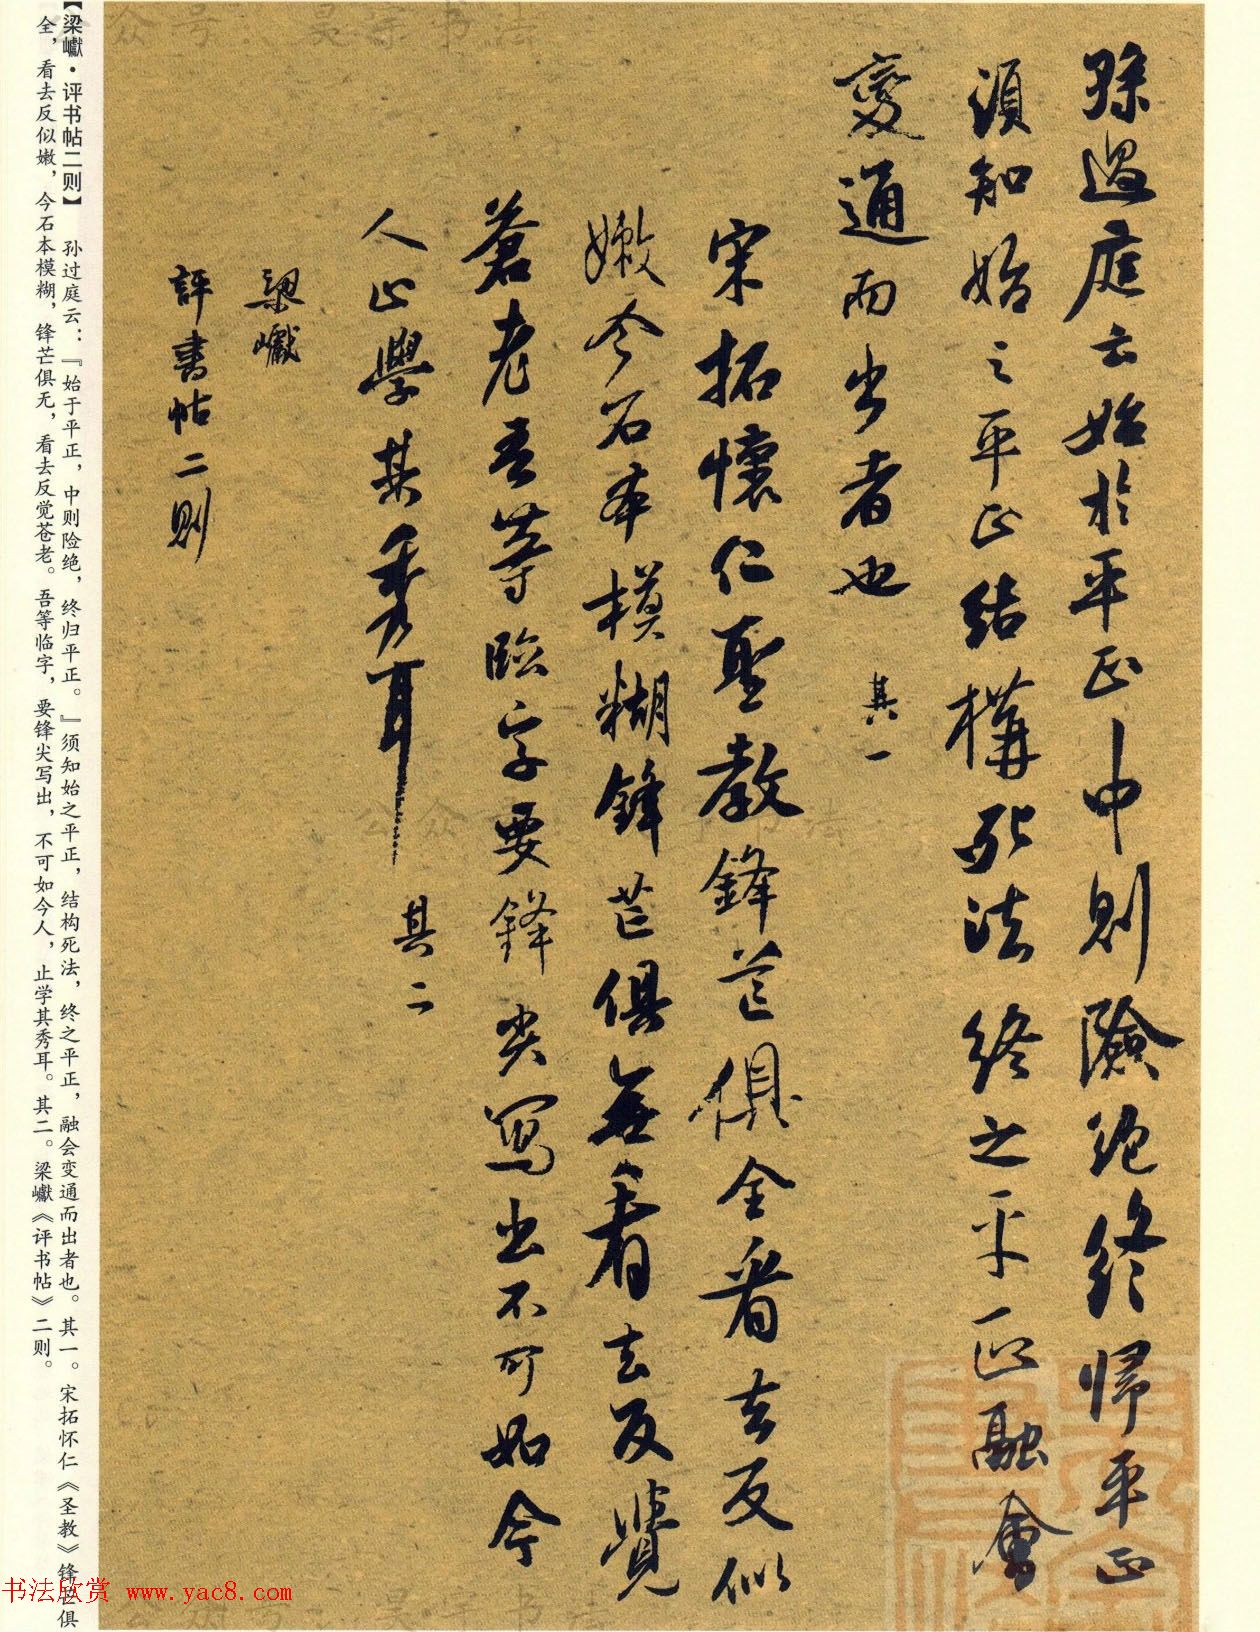 孫過庭云始於平正中則險絕終歸平正
須知始之平正結構死法終之平正融會
變通而出者也 其一
宋拓懷仁聖教鋒芒俱全看去反似
嫩今石本模糊鋒芒俱無看去反覺
蒼老吾等臨字要鋒尖寫出不可如今
人止學其秀耳 其二
梁巘
評書帖二則
【梁巘·评书帖二则】 孙过庭云：『始于平正，中则险绝，终归平正。』须知始之平正，结构死法，终之平正，融会变通而出者也。其一。宋拓怀仁《圣教》锋芒俱
全，看去反似嫩，今石本模糊，锋芒俱无，看去反觉苍老。吾等临字，要锋尖写出，不可如今人，止学其秀耳。其二。梁巘《评书帖》二则。
书法欣赏 www.yac8.com